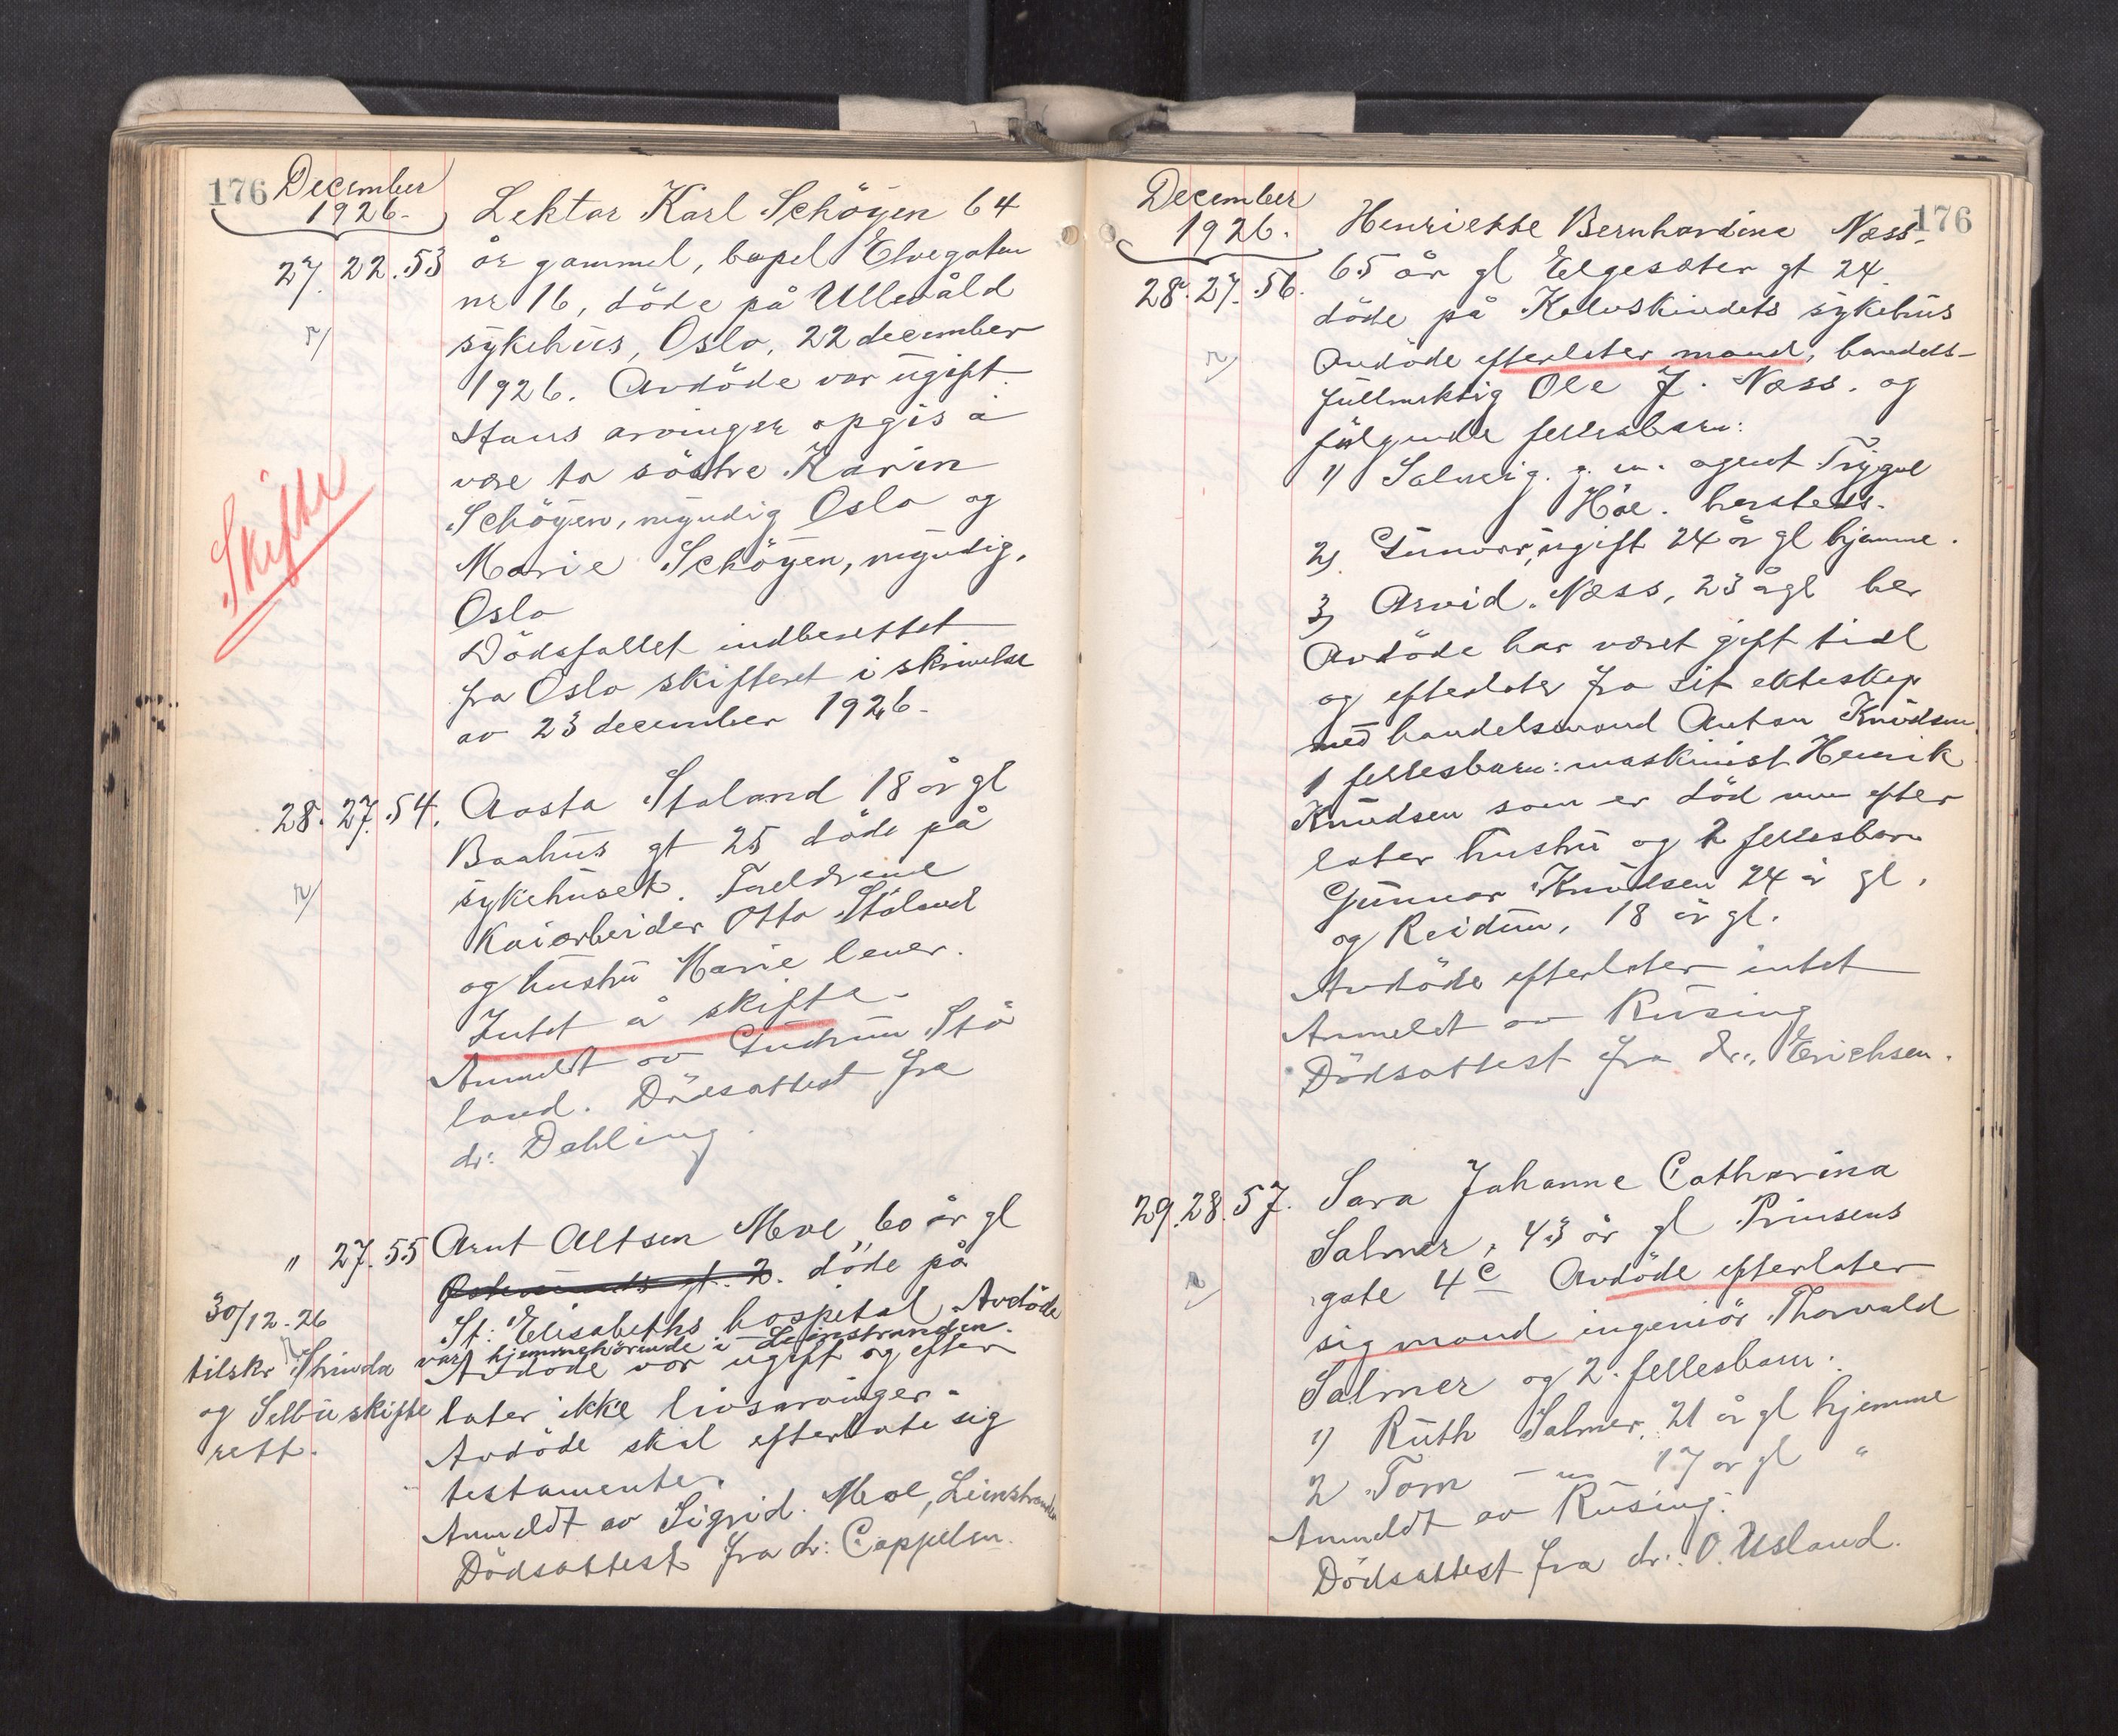 176 December
1926.
27. 22. 53 Lektor Karl Schöyen 64
år gammel, bopel Elvegaten
nr 16, döde på Ullevåld
sykehus, Oslo, 22 december
1926. Avdöde var ugift.
Hans arvinger opgis å
være to söstre Karin
Schöyen, myndig Oslo og
Marie Schöyen, myndig,
Oslo
Skifte
Dödsfallet indberettet
fra Oslo skifteret i skrivelse
av 23 december 1926.
28. 27. 54. Aasta Staland 18 år gl
Baahus gt 25 döde på
sykehuset. Foreldrene
Kaiarbeider Otto Stoland
og hustru Marie lever.
Intet å skifte.
Anmeldt av Gudrun Sto
land. Dödsattest fra
dr: Dahling.
" 27. 55 Arnt Altsen Moe, 60 år gl
gt. 2. döde på
St: Elisabeths hospital. Avdöde
var hjemmehörende i Leinstranden.
Avdöde var ugift og efter
later ikke livsarvinger.
Avdöde skal efterlate sig
testamente.
Anmeldt av Sigrid Moe, Leinstranden
Dödsattest fra dr: Cappelen.
30/12-26
tilskr Strinda
og Selbu skifte
rett.
December
1926.
176
28. 27. 56. Henriette Bernhardine Næss.
65 år gl Elgesæter gt 24
döde på Kalvskindets sykehus
Avdöde efterlater mand, handels-
fullmektig Ole J. Næss. og
fölgende fellesbarn:
1) Solveig. g. m. agent Trygve
Höe. hersteds.
2) Gunvor, ugift 24 år gl hjemme.
3) Arvid Næss, 23 år gl her
Avdöde har været gift tidl
og efterlater fra sit ekteskap
med handelsmand Anton Knudsen
1 fellesbarn: maskinist Henrik
Knudsen som er död men efter
later hustru og 2 fellesbarn
Gunnar Knudsen 24 år gl.
og Reidun, 18 år gl.
Avdöde efterlater intet
Anmeldt av Rusing
Dödsattest fra dr. Erichsen.
29. 28. 57. Sara Johanne Catharina
Salmer, 43 år gl Prinsens
gate 4c Avdöde efterlater
sig mand ingeniör Thorvald
Salmer og 2 fellesbarn.
1) Ruth Salmer, 21 år gl hjemme
2 Tom — " — 17 år gl "
Anmeldt av Rusing.
Dödsattest fra dr: O. Usland.